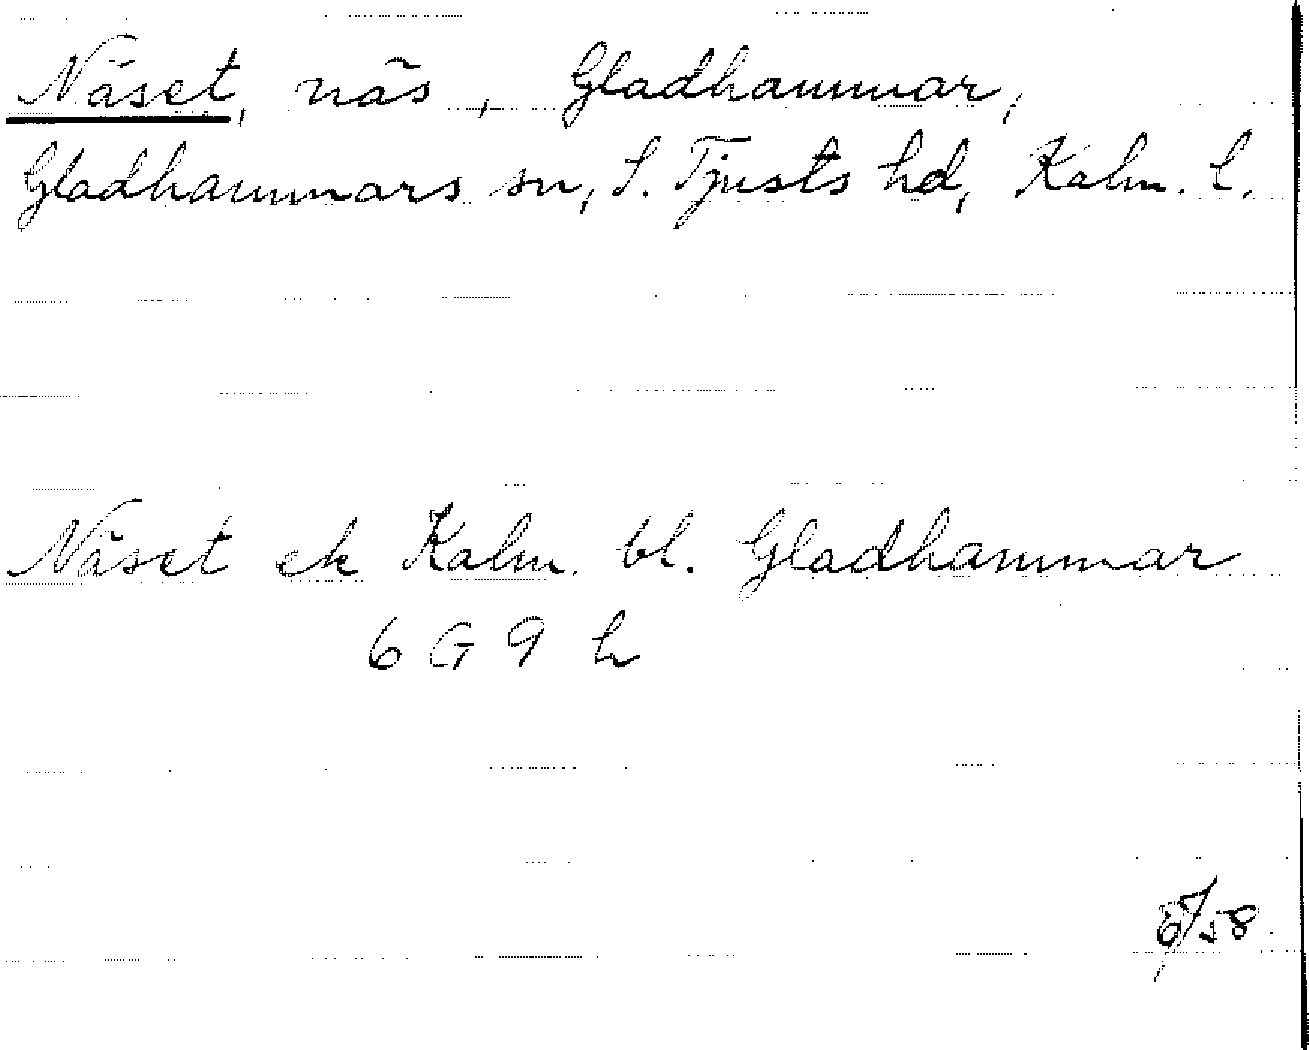 Näset, näs, Gladhammar,
Gladhammars sn, S. Tjusts hd, Kalm. l.
Näset ek Kalm. bl. Gladhammar
6 G 9 h